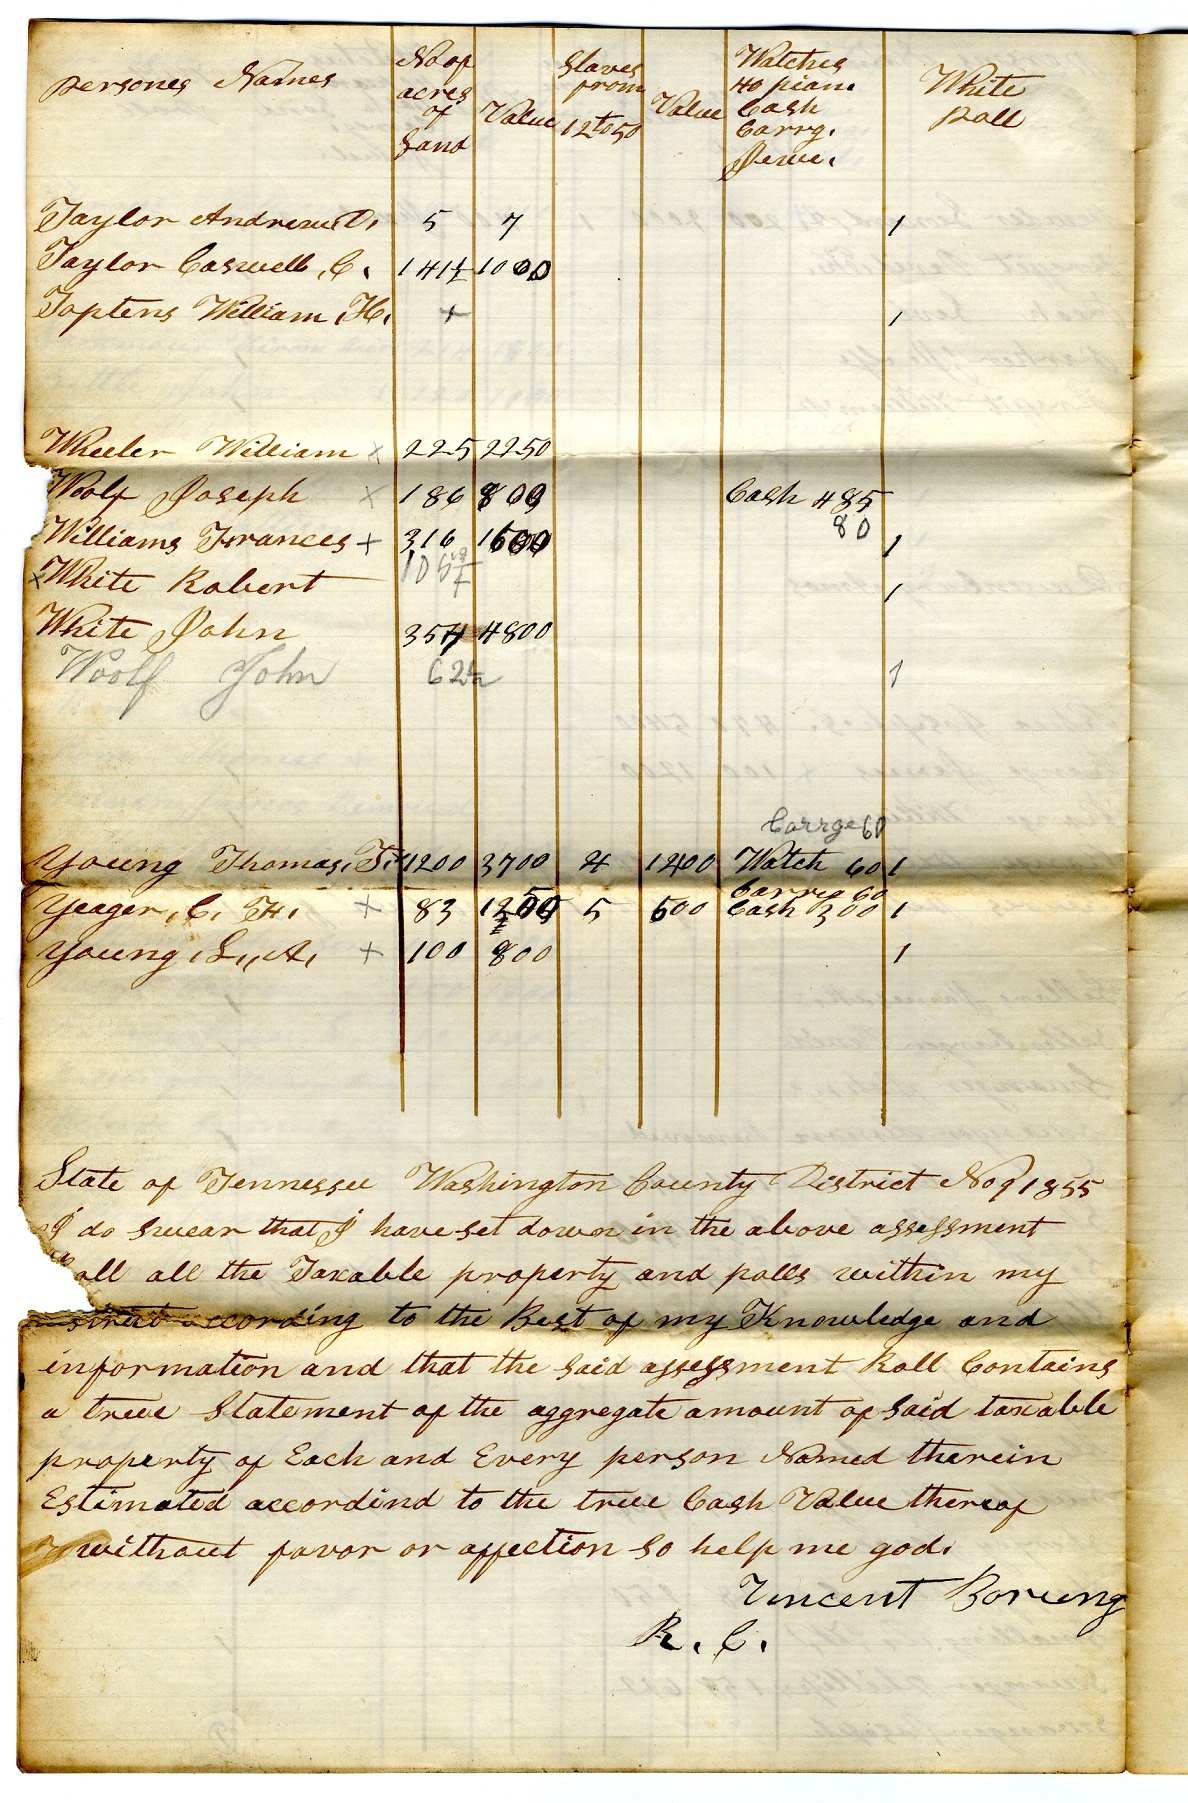 persones Names | No of acres of Land | Value | Slaves from 12 to 50 | Value | Watches 40 pian. Cash Carrg. Jewe. | White Poll
Taylor Andrew D. 5 7 1
Taylor Caswell, C. 141½ 1000
Toptens William, H. + 1
Wheeler William x 225 2250
Woolf Joseph x 186 800 Cash 485
80
Williams Frances + 316 1500 1
x White Robert 105 1
White John 354 4800
Woolf John 62½ 1
Carrge 60
Young Thomas, T. 1200 3700 4 1400 Watch 60 1
Carrg 60
Yeager, C. H. + 83 1250 5 600 Cash 300 1
Young, S,, A, + 100 800 1
State of Tennessee Washington County District No 9 1855
I do swear that I have set down in the above assessment
oll all the Taxable property and polls within my
strict according to the Best of my Knowledge and
information and that the said assessment Roll Contains
a treue Statement of the aggregate amount of said taxable
property of Each and Every person Named therein
Estimated accordind to the treue Cash Value thereof
without favor or affection so help me god.
Vincent Boreing
R. C.